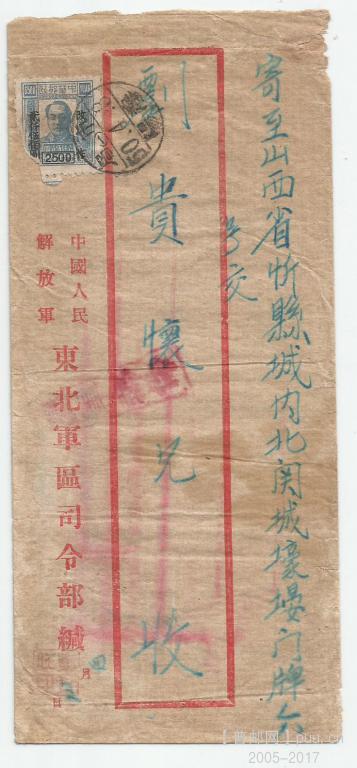 寄至山西省忻縣城内北関城壕塄门牌六
号交
劉貴懷兄 收
中國人民
解放軍
東北軍區司令部緘
月
日
2500
【普邮网】puu.cn
2005-2017